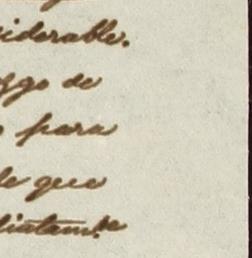 siderable.
go de
para
de que
diatam.te